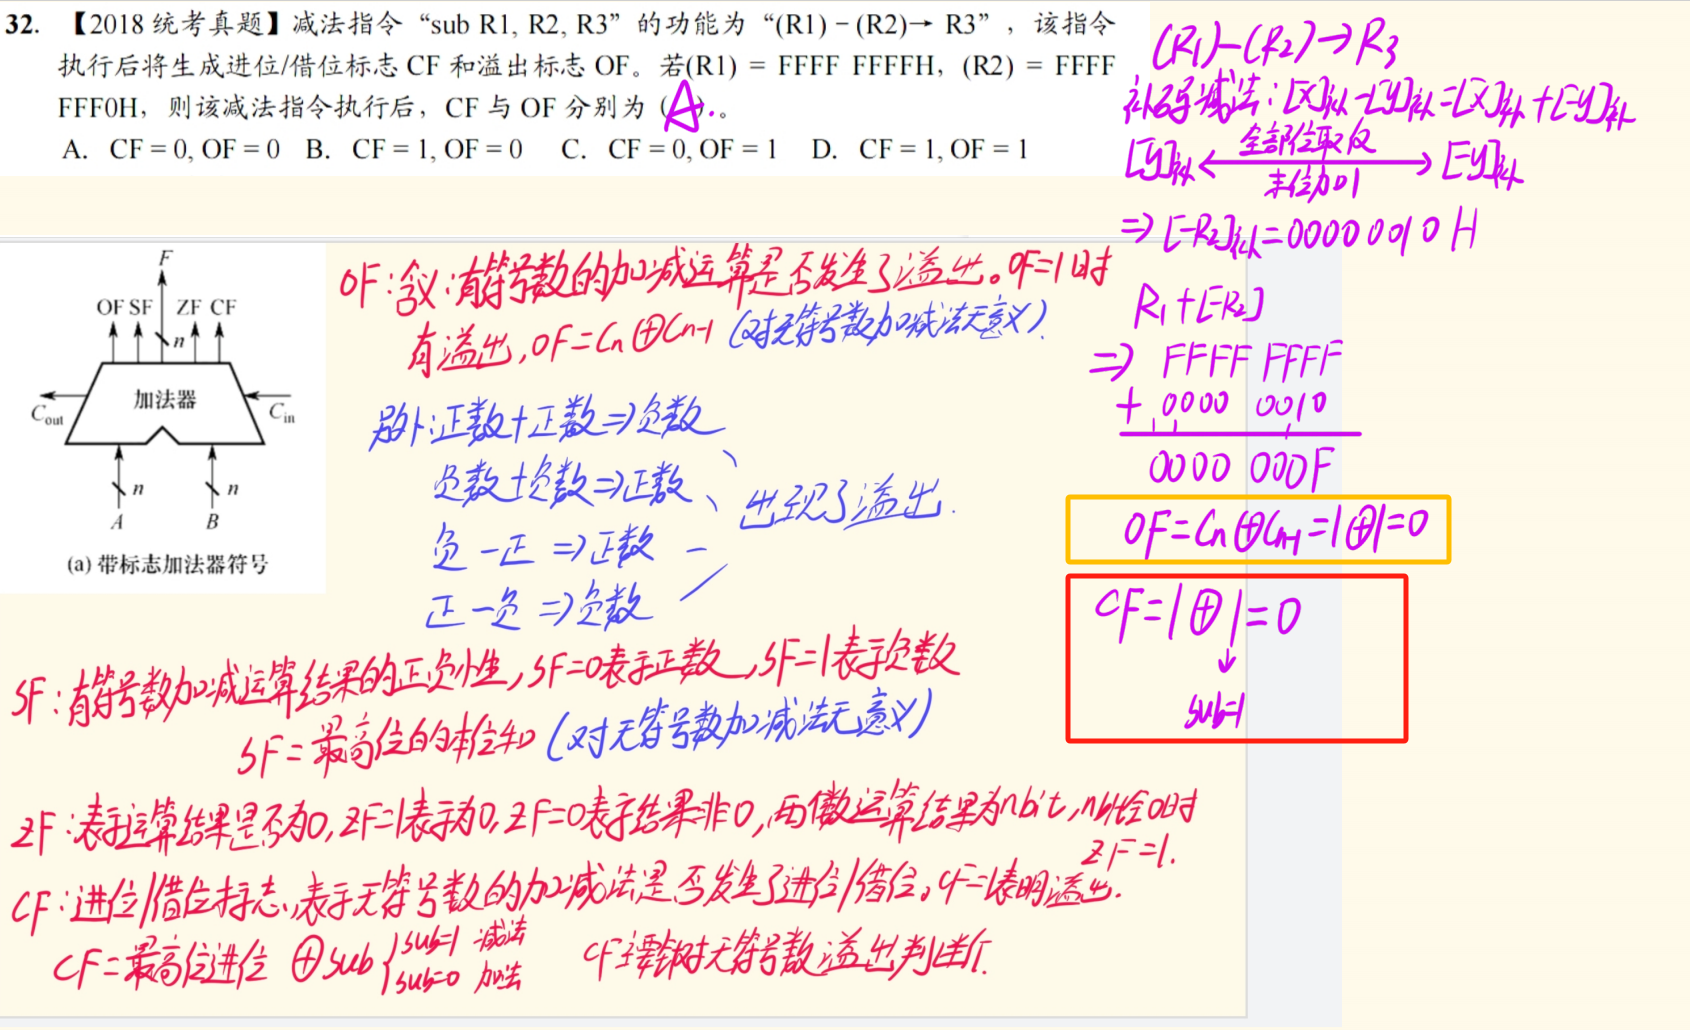 32. 【2018 统考真题】减法指令“sub R1, R2, R3”的功能为“(R1) − (R2)→ R3”，该指令
执行后将生成进位/借位标志 CF 和溢出标志 OF。若(R1) = FFFF FFFFH，(R2) = FFFF
FFF0H，则该减法指令执行后，CF 与 OF 分别为（A）。
A. CF = 0, OF = 0 B. CF = 1, OF = 0 C. CF = 0, OF = 1 D. CF = 1, OF = 1
(R1)-(R2)→R3
补码减法：[X]补-[Y]补=[X]补+[-Y]补
[Y]补 ←全部位取反 末位加1→ [-Y]补
⇒[-R2]补=0000 0010H
R1+[-R2]
⇒ FFFF FFFF
+ 0000 0010
0000 000F
OF=Cn⊕Cn-1=1⊕1=0
CF=1⊕1=0
↓
sub=1
F
OF SF ZF CF
n
加法器
Cout
Cin
n n
A B
(a) 带标志加法器符号
OF：含义：有符号数的加减运算是否发生了溢出。OF=1时
有溢出，OF=Cn⊕Cn-1（对无符号数加减法无意义）.
另外：正数+正数⇒负数
负数+负数⇒正数、出现了溢出.
负-正⇒正数
正-负⇒负数
SF：有符号数加减运算结果的正负性，SF=0表示正数，SF=1表示负数
SF=最高位的本位和（对无符号数加减法无意义）
ZF：表示运算结果是否为0，ZF=1表示为0，ZF=0表示结果非0，两个数运算结果为nbit，nbit全0时
ZF=1.
CF：进位/借位标志，表示无符号数的加减法是否发生了进位/借位。CF=1表明溢出.
CF=最高位进位⊕sub{sub=1 减法
sub=0 加法
CF主要针对无符号数溢出判断.